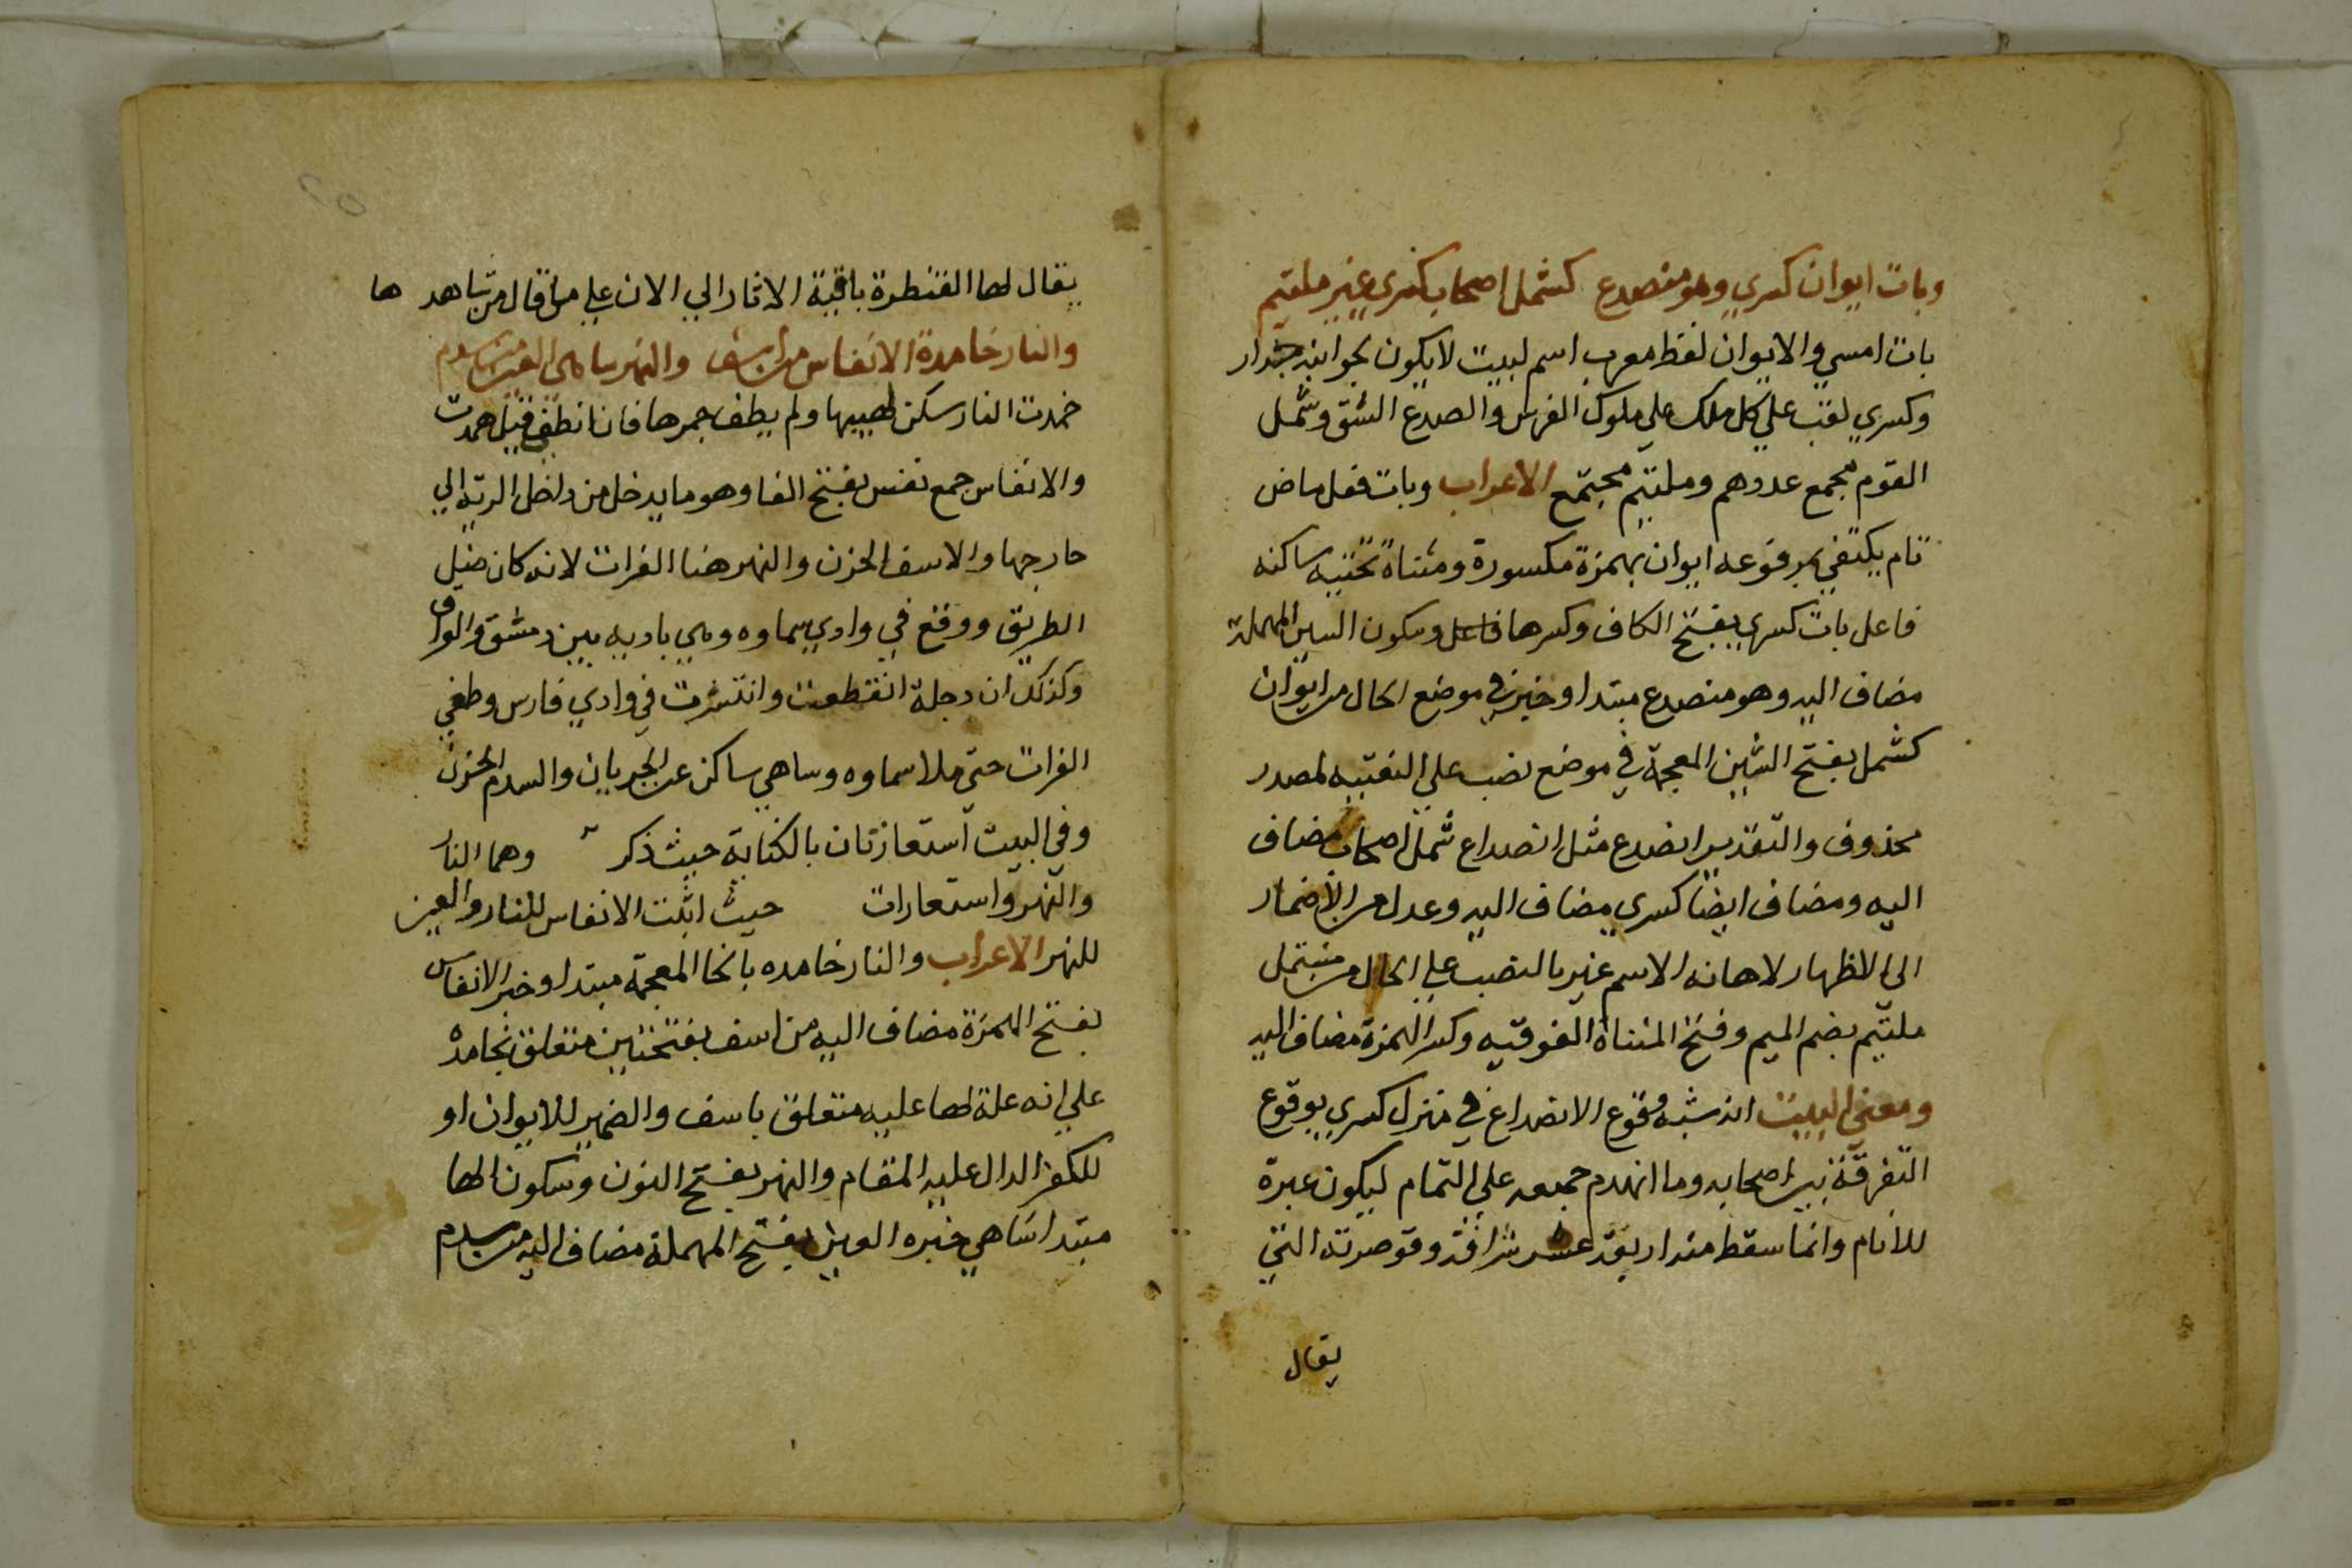 وبات ايوان كسري وهو منصدع كشمل اصحاب كسري غير ملتيم
بات امسي والايوان لفظ معرب اسم لبيت لا يكون بجوانبه جدار
وكسري لقب علي كل ملك علي ملوك الفرس والصدع الشق وشمل
القوم مجمع عددهم وملتيم مجتمع الاعراب وبات فعل ماض
تام يكتفي بمرفوعه ايوان بهمزة مكسورة ومثناة تحتيه ساكنه
فاعل بات كسري بفتح الكاف وكسرها فاعل وسكون السين المهملة
مضاف اليه وهو منصدع مبتدا وخبر في موضع الحال من ايوان
كشمل بفتح الشين المعجمة في موضع نصب علي النعتيه لمصدر
محذوف والتقدير انصدع مثل انصداع شمل اصحاب مضاف
اليه ومضاف ايضا كسري مضاف اليه وعدل عن الاضمار
الى الاظهار لاهانه الاسم غير بالنصب علي الحال من شمل
ملتيم بضم الميم وفتح المثناة الفوقيه وكسر الهمزة مضاف اليه
ومعني البيت انه شبه وقوع الانصداع في منزل كسري بوقوع
التفرقة بين اصحابه وما انهدم جميعه علي التمام ليكون عبرة
للانام وانما سقط منه اربعة عشر شرافة وقوصرته التي
يقال
يقال لها القنطرة باقية الاثار الي الان علي ما قال من شاهد ها
والنار خامدة الانفاس من اسف والنهر ساهي العين من سدم
خمدت النار سكن لهيبها ولم يطف جمرها فان انطفي قيل همدت
والانفاس جمع نفس بفتح الفا وهو ما يدخل من داخل الرية الي
خارجها والاسف الحزن والنهر هنا الفرات لانه كان ضيل
الطريق ووقع في وادي سماوه وهي باديه بين دمشق والعراق
وكذلك ان دجلة انقطعت وانتشرت في وادي فارس وطغي
الفرات حتي ملا سماوه وساهي ساكن عن الجريان والسدم الحزن
وفي البيت استعارتان بالكناية حيث ذكر وهما النار
والنهر واستعارات حيث اثبت الانفاس للنار والعين
للنهر الاعراب والنار خامده بالخا المعجمة مبتدا وخبر الانفاس
بفتح الهمزة مضاف اليه من اسف بفتحتين متعلق بخامدة
علي انه علة لها عليه متعلق باسف والضمير للايوان او
للكفر الدال عليه المقام والنهر بفتح النون وسكون الها
مبتدا ساهي خبره العين بفتح المهملة مضاف اليه من سدم